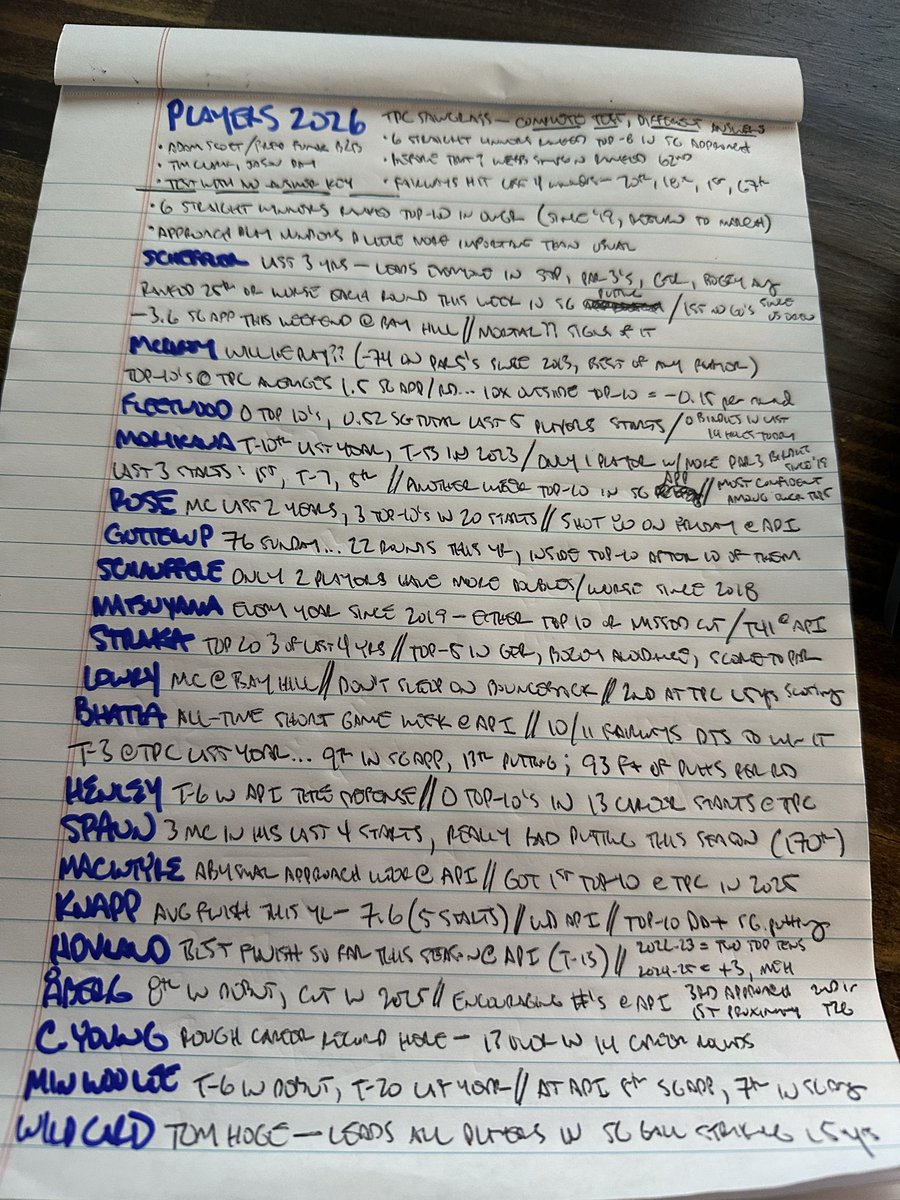 PLAYERS 2026 TPC SAWGRASS — COMPLETE TEST, DIFFERENT ANSWERS
• ADAM SCOTT / FRED FUNK B2B • 6 STRAIGHT WINNERS RANKED TOP-8 IN SG APPROACH
• TIM CLARK, JASON DAY • BEFORE THAT? WEBB SIMPSON RANKED 62ND
• TEST WITH NO ANSWER KEY • FAIRWAYS HIT LAST 4 WINNERS — 20th, 18th, 1st, 67th
• 6 STRAIGHT WINNERS RANKED TOP-10 IN (SINCE '19, RETURN TO MARCH)
• APPROACH PLAY WINDOWS A LITTLE MORE IMPORTANT THAN USUAL
SCHEFFLER LAST 3 YRS — LEADS EVERYONE IN STP, PAR 3'S, GIR, BOGEY AVG
RANKED 25th OR WORSE EACH ROUND THIS WEEK IN SG PUTTING / 1ST NO 60'S SINCE US OPEN
-3.6 SG APP THIS WEEKEND @ BAY HILL // MORTAL?? SIGNS OF IT
MCILROY WILL HE PLAY?? (-74 ON PAR 5'S SINCE 2013, BEST OF ANY PLAYER)
TOP-10'S @ TPC AVERAGES 1.5 SG APP/RD... 10X OUTSIDE TOP-10 = -0.15 PER ROUND
FLEETWOOD 0 TOP 10'S, 0.52 SG TOTAL LAST 5 PLAYERS STARTS / 0 BIRDIES IN LAST 14 HOLES TODAY
MORIKAWA T-10th LAST YEAR, T-13 IN 2023 / ONLY 1 PLAYER W/ MORE PAR 3 BIRDIES SINCE '19
LAST 3 STARTS: 1ST, T-7, 5th // ANOTHER WEEK TOP-10 IN SG APP // MOST CONFIDENT AMONG OVER TOPS
ROSE MC LAST 2 YEARS, 3 TOP-10'S IN 20 STARTS // SHOT 80 ON FRIDAY @ API
GOTTERUP 76 SUNDAY... 22 ROUNDS THIS YR, INSIDE TOP-10 AFTER 10 OF THEM
SCHAUFFELE ONLY 2 PLAYERS HAVE MORE DOUBLES/WORSE SINCE 2018
MATSUYAMA EVERY YEAR SINCE 2019 — EITHER TOP 10 OR MISSED CUT / T41 @ API
STRAKA TOP 20 3 OF LAST 4 YRS // TOP-5 IN GIR, BOGEY AVOIDANCE, SCORE TO PAR
LOWRY MC @ BAY HILL // DON'T SLEEP ON BOUNCEBACK // 2ND AT TPC L5yrs SCORING
BHATIA ALL-TIME SHORT GAME WEEK @ API // 10/11 FAIRWAYS DTS TO WIN IT
T-3 @ TPC LAST YEAR... 9th IN SG APP, 13th PUTTING; 93 FT OF PUTTS PER RD
HENLEY T-6 IN API TITLE DEFENSE // 0 TOP-10'S IN 13 CAREER STARTS @ TPC
SPAUN 3 MC IN HIS LAST 4 STARTS, REALLY BAD PUTTING THIS SEASON (170th)
MACINTYRE ABYSMAL APPROACH WEEK @ API // GOT 1ST TOP-10 @ TPC IN 2025
KNAPP AVG FINISH THIS YR — 7.6 (5 STARTS) // WD API // TOP-10 DD + SG PUTTING
HOVLAND BEST FINISH SO FAR THIS SEASON @ API (T-13) // 2022-23 = TWO TOP TENS 2024-25 = +3, MEH
ÅBERG 8th IN DEBUT, CUT IN 2025 // ENCOURAGING #'S @ API 3RD APPROACH 1ST PROXIMITY 2ND IN T2G
C YOUNG ROUGH CAREER RECORD HERE — 13 OVER IN 14 CAREER ROUNDS
MIN WOO LEE T-6 IN DEBUT, T-20 LAST YEAR // AT API 8th SG APP, 7th IN SCRAMG
WILD CARD TOM HOGE — LEADS ALL PLAYERS IN SG BALL STRIKING L5yrs